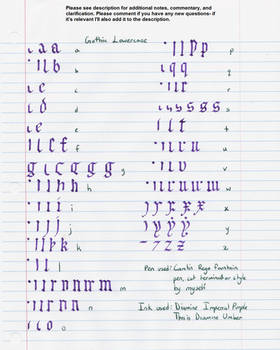 Please see description for additional notes, commentary, and
clarification. Please comment if you have any new questions- if
it's relevant I'll also add it to the description.
Gothic Lowercase
a
b
c
d
e
f
g
h
i
j
k
l
m
n
o
p
q
r
s
t
u
v
w
x
y
z
Pen used: Fountain
pen, cut terminator style
by myself
Ink used: Diamine Imperial Purple
This is Diamine Umber